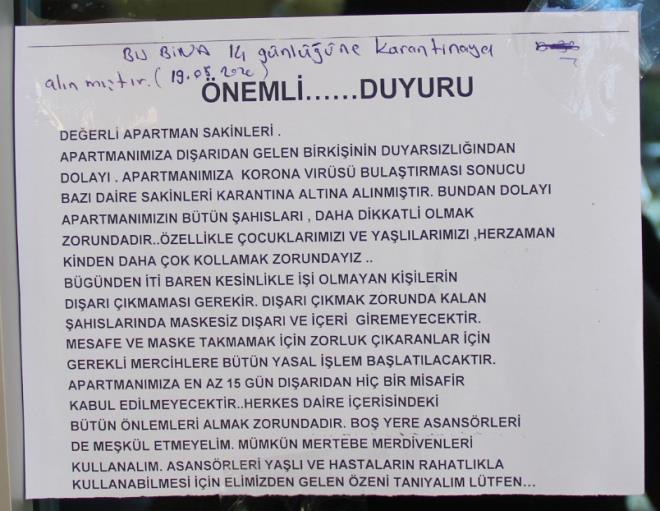 BU BİNA 14 günlüğüne karantinaya
alınmıştır. (19.05.2020)
ÖNEMLİ......DUYURU
DEĞERLİ APARTMAN SAKİNLERİ .
APARTMANIMIZA DIŞARIDAN GELEN BİRKİŞİNİN DUYARSIZLIĞINDAN
DOLAYI . APARTMANIMIZA KORONA VIRÜSÜ BULAŞTIRMASI SONUCU
BAZI DAİRE SAKİNLERİ KARANTINA ALTINA ALINMIŞTIR. BUNDAN DOLAYI
APARTMANIMIZIN BÜTÜN ŞAHISLARI , DAHA DİKKATLİ OLMAK
ZORUNDADIR..ÖZELLİKLE ÇOCUKLARIMIZI VE YAŞLILARIMIZI ,HERZAMAN
KİNDEN DAHA ÇOK KOLLAMAK ZORUNDAYIZ ..
BÜGÜNDEN İTİ BAREN KESİNLİKLE İŞİ OLMAYAN KİŞİLERİN
DIŞARI ÇIKMAMASI GEREKİR. DIŞARI ÇIKMAK ZORUNDA KALAN
ŞAHISLARINDA MASKESİZ DIŞARI VE İÇERİ GİREMEYECEKTİR.
MESAFE VE MASKE TAKMAMAK İÇİN ZORLUK ÇIKARANLAR İÇİN
GEREKLİ MERCİHLERE BÜTÜN YASAL İŞLEM BAŞLATILACAKTIR.
APARTMANIMIZA EN AZ 15 GÜN DIŞARIDAN HİÇ BİR MİSAFİR
KABUL EDİLMEYECEKTİR..HERKES DAİRE İÇERİSİNDEKİ
BÜTÜN ÖNLEMLERİ ALMAK ZORUNDADIR. BOŞ YERE ASANSÖRLERİ
DE MEŞKÜL ETMEYELİM. MÜMKÜN MERTEBE MERDİVENLERİ
KULLANALIM. ASANSÖRLERİ YAŞLI VE HASTALARIN RAHATLIKLA
KULLANABİLMESİ İÇİN ELİMİZDEN GELEN ÖZENİ TANIYALIM LÜTFEN...